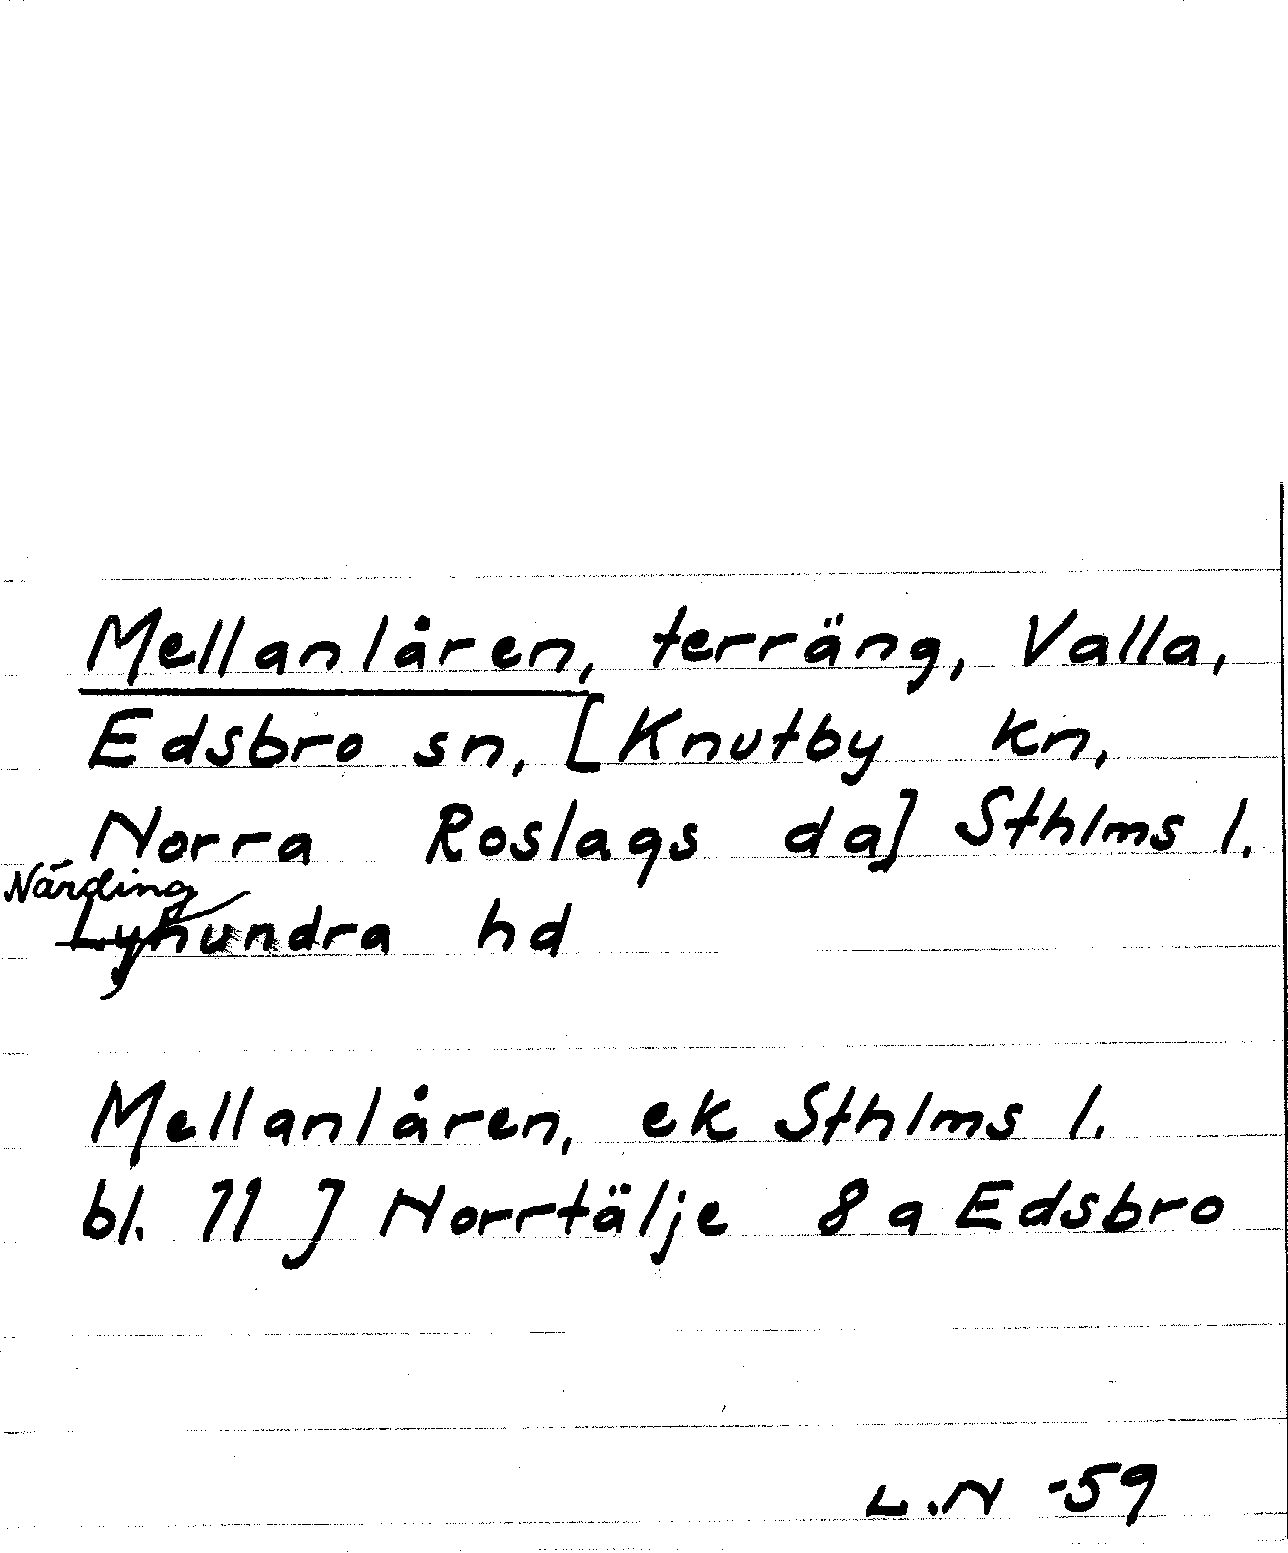 Mellanlåren, terräng, Valla,
Edsbro sn, [Knutby kn,
Norra Roslags da] Sthlms l.
Närding
Lyhundra hd
Mellanlåren, ek Sthlms l.
bl. 11 J Norrtälje 8 a Edsbro
L.N -59